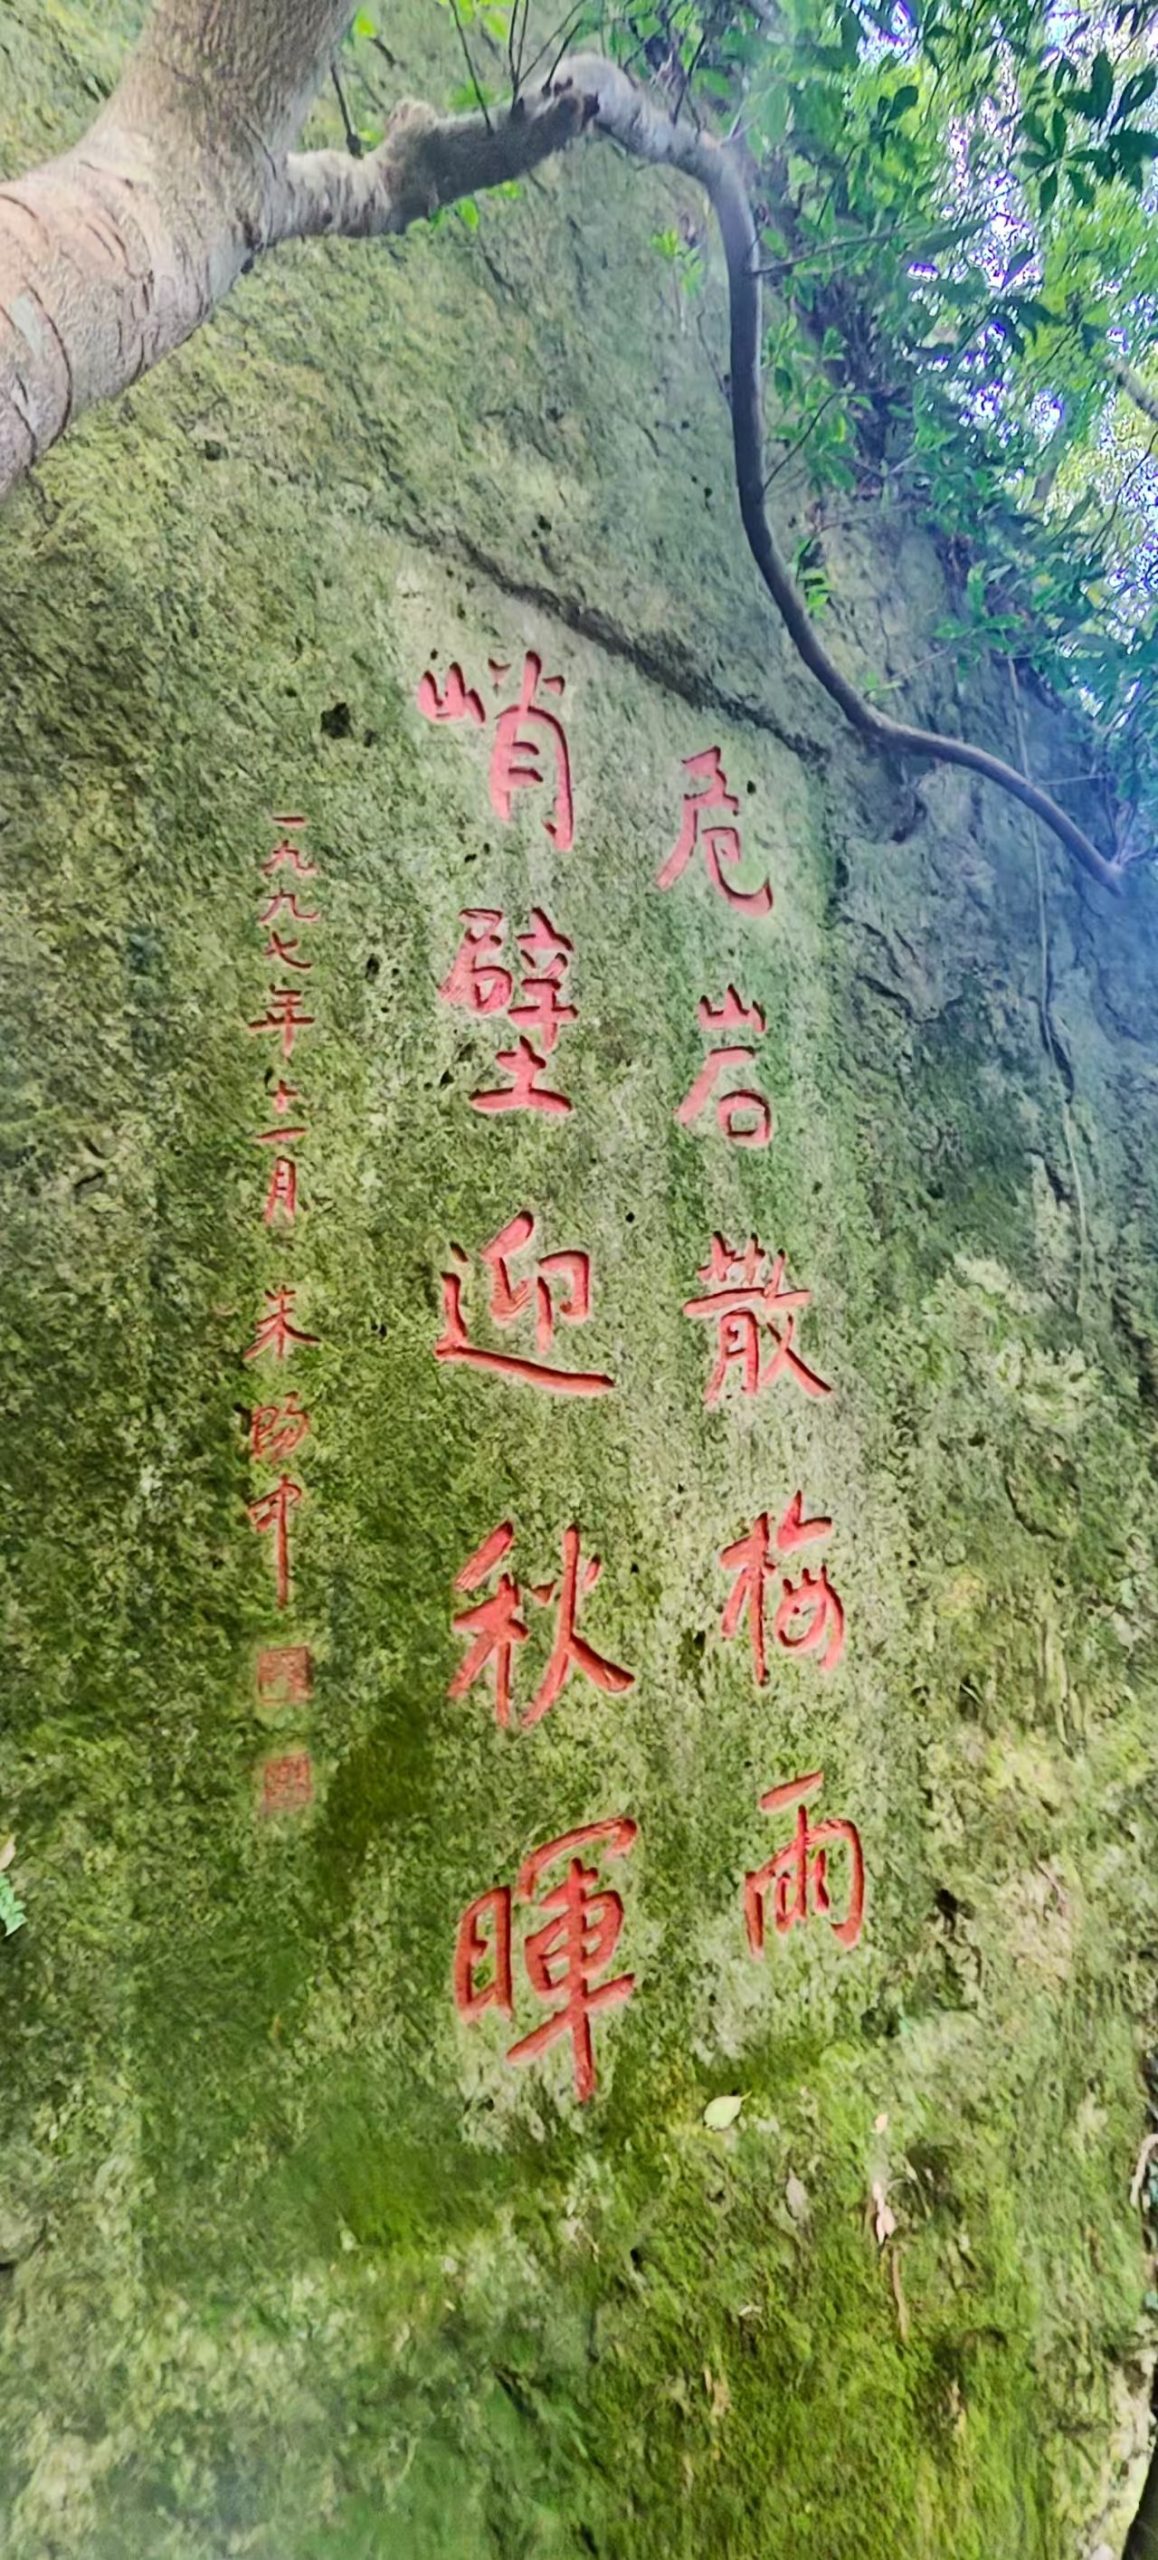 危岩散梅雨
峭壁迎秋暉
一九九七年十一月 朱